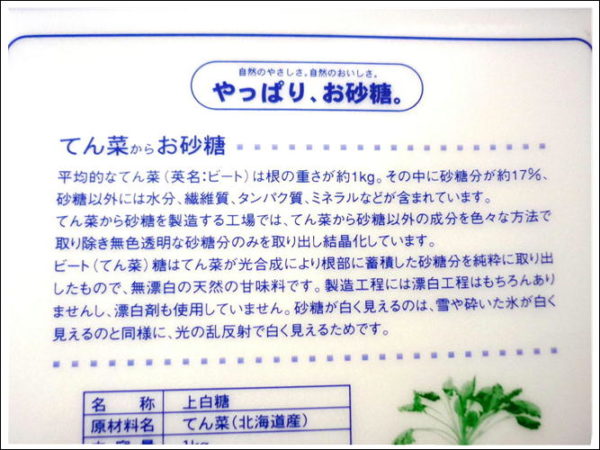 自然のやさしさ。自然のおいしさ。
やっぱり、お砂糖。
てん菜からお砂糖
平均的なてん菜（英名：ビート）は根の重さが約1kg。その中に砂糖分が約17％、
砂糖以外には水分、繊維質、タンパク質、ミネラルなどが含まれています。
てん菜から砂糖を製造する工場では、てん菜から砂糖以外の成分を色々な方法で
取り除き無色透明な砂糖分のみを取り出し結晶化しています。
ビート（てん菜）糖はてん菜が光合成により根部に蓄積した砂糖分を純粋に取り出
したもので、無漂白の天然の甘味料です。製造工程には漂白工程はもちろんあり
ませんし、漂白剤も使用していません。砂糖が白く見えるのは、雪や砕いた氷が白く
見えるのと同様に、光の乱反射で白く見えるためです。
名　称 上白糖
原材料名 てん菜（北海道産）
内 容 量 1kg